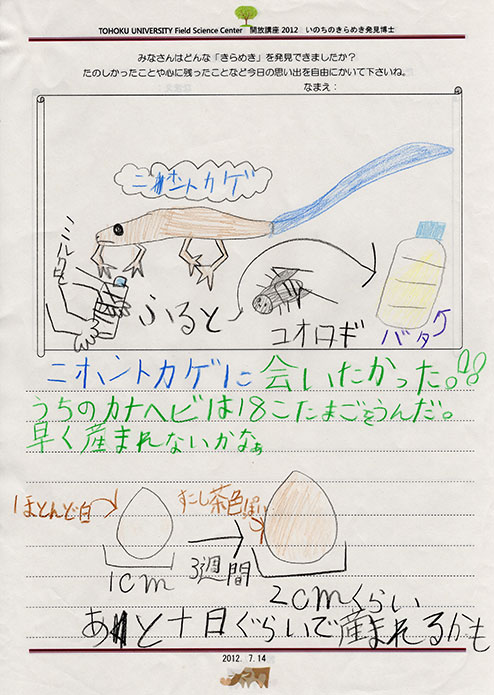 TOHOKU UNIVERSITY Field Science Center 開放講座 2012 いのちのきらめき発見博士
みなさんはどんな「きらめき」を発見できましたか？
たのしかったことや心に残ったことなど今日の思い出を自由にかいて下さいね。
なまえ：
ニホントカゲ
ミルク
ふると
コオロギ
バタ
ニホントカゲに会いたかった。!!
うちのカナヘビは18こたまごをうんだ。
早く産まれないかなぁ
ほとんど白
すこし茶色っぽい
1cm
3週間
2cmくらい
あと十日ぐらいで産まれるかも
2012. 7.14